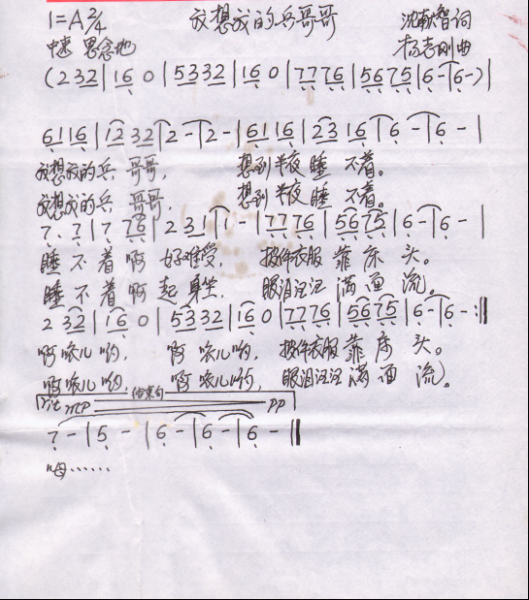 1=A 2/4 我想我的兵哥哥 沈献智词
中速 思念地 杨志刚曲
(2 32|16 0|5332|16 0|7776|5675|6-|6-)|
6116|12 32|2-|2-|6116|23 16|6-|6-|
我想我的兵哥哥, 想到半夜睡不着。
我想我的兵哥哥, 想到半夜睡不着。
7. 7|7 76|2 31|1-|7776|5675|6-|6-|
睡不着啊好难受, 披件衣服靠床头。
睡不着啊起身坐, 眼泪汪汪满面流。
2 32|16 0|5332|16 0|7776|5675|6-|6-:||
啊哝儿哟, 啊哝儿哟, 披件衣服靠床头。
啊哝儿哟, 啊哝儿哟, 眼泪汪汪满面流)。
rit mp 结束句 pp
7-|5-|6-|6-|6-||
呣……